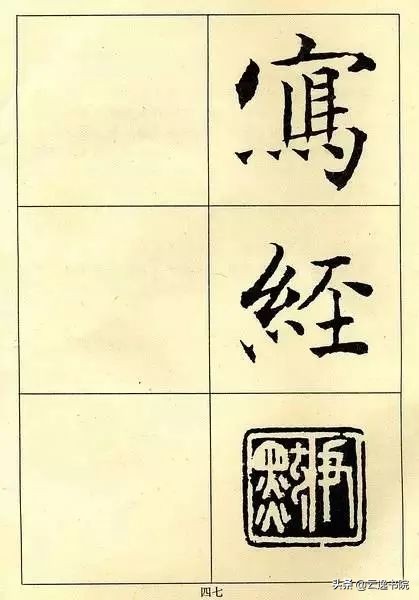 寫
經
四七
头条 @云逸书院